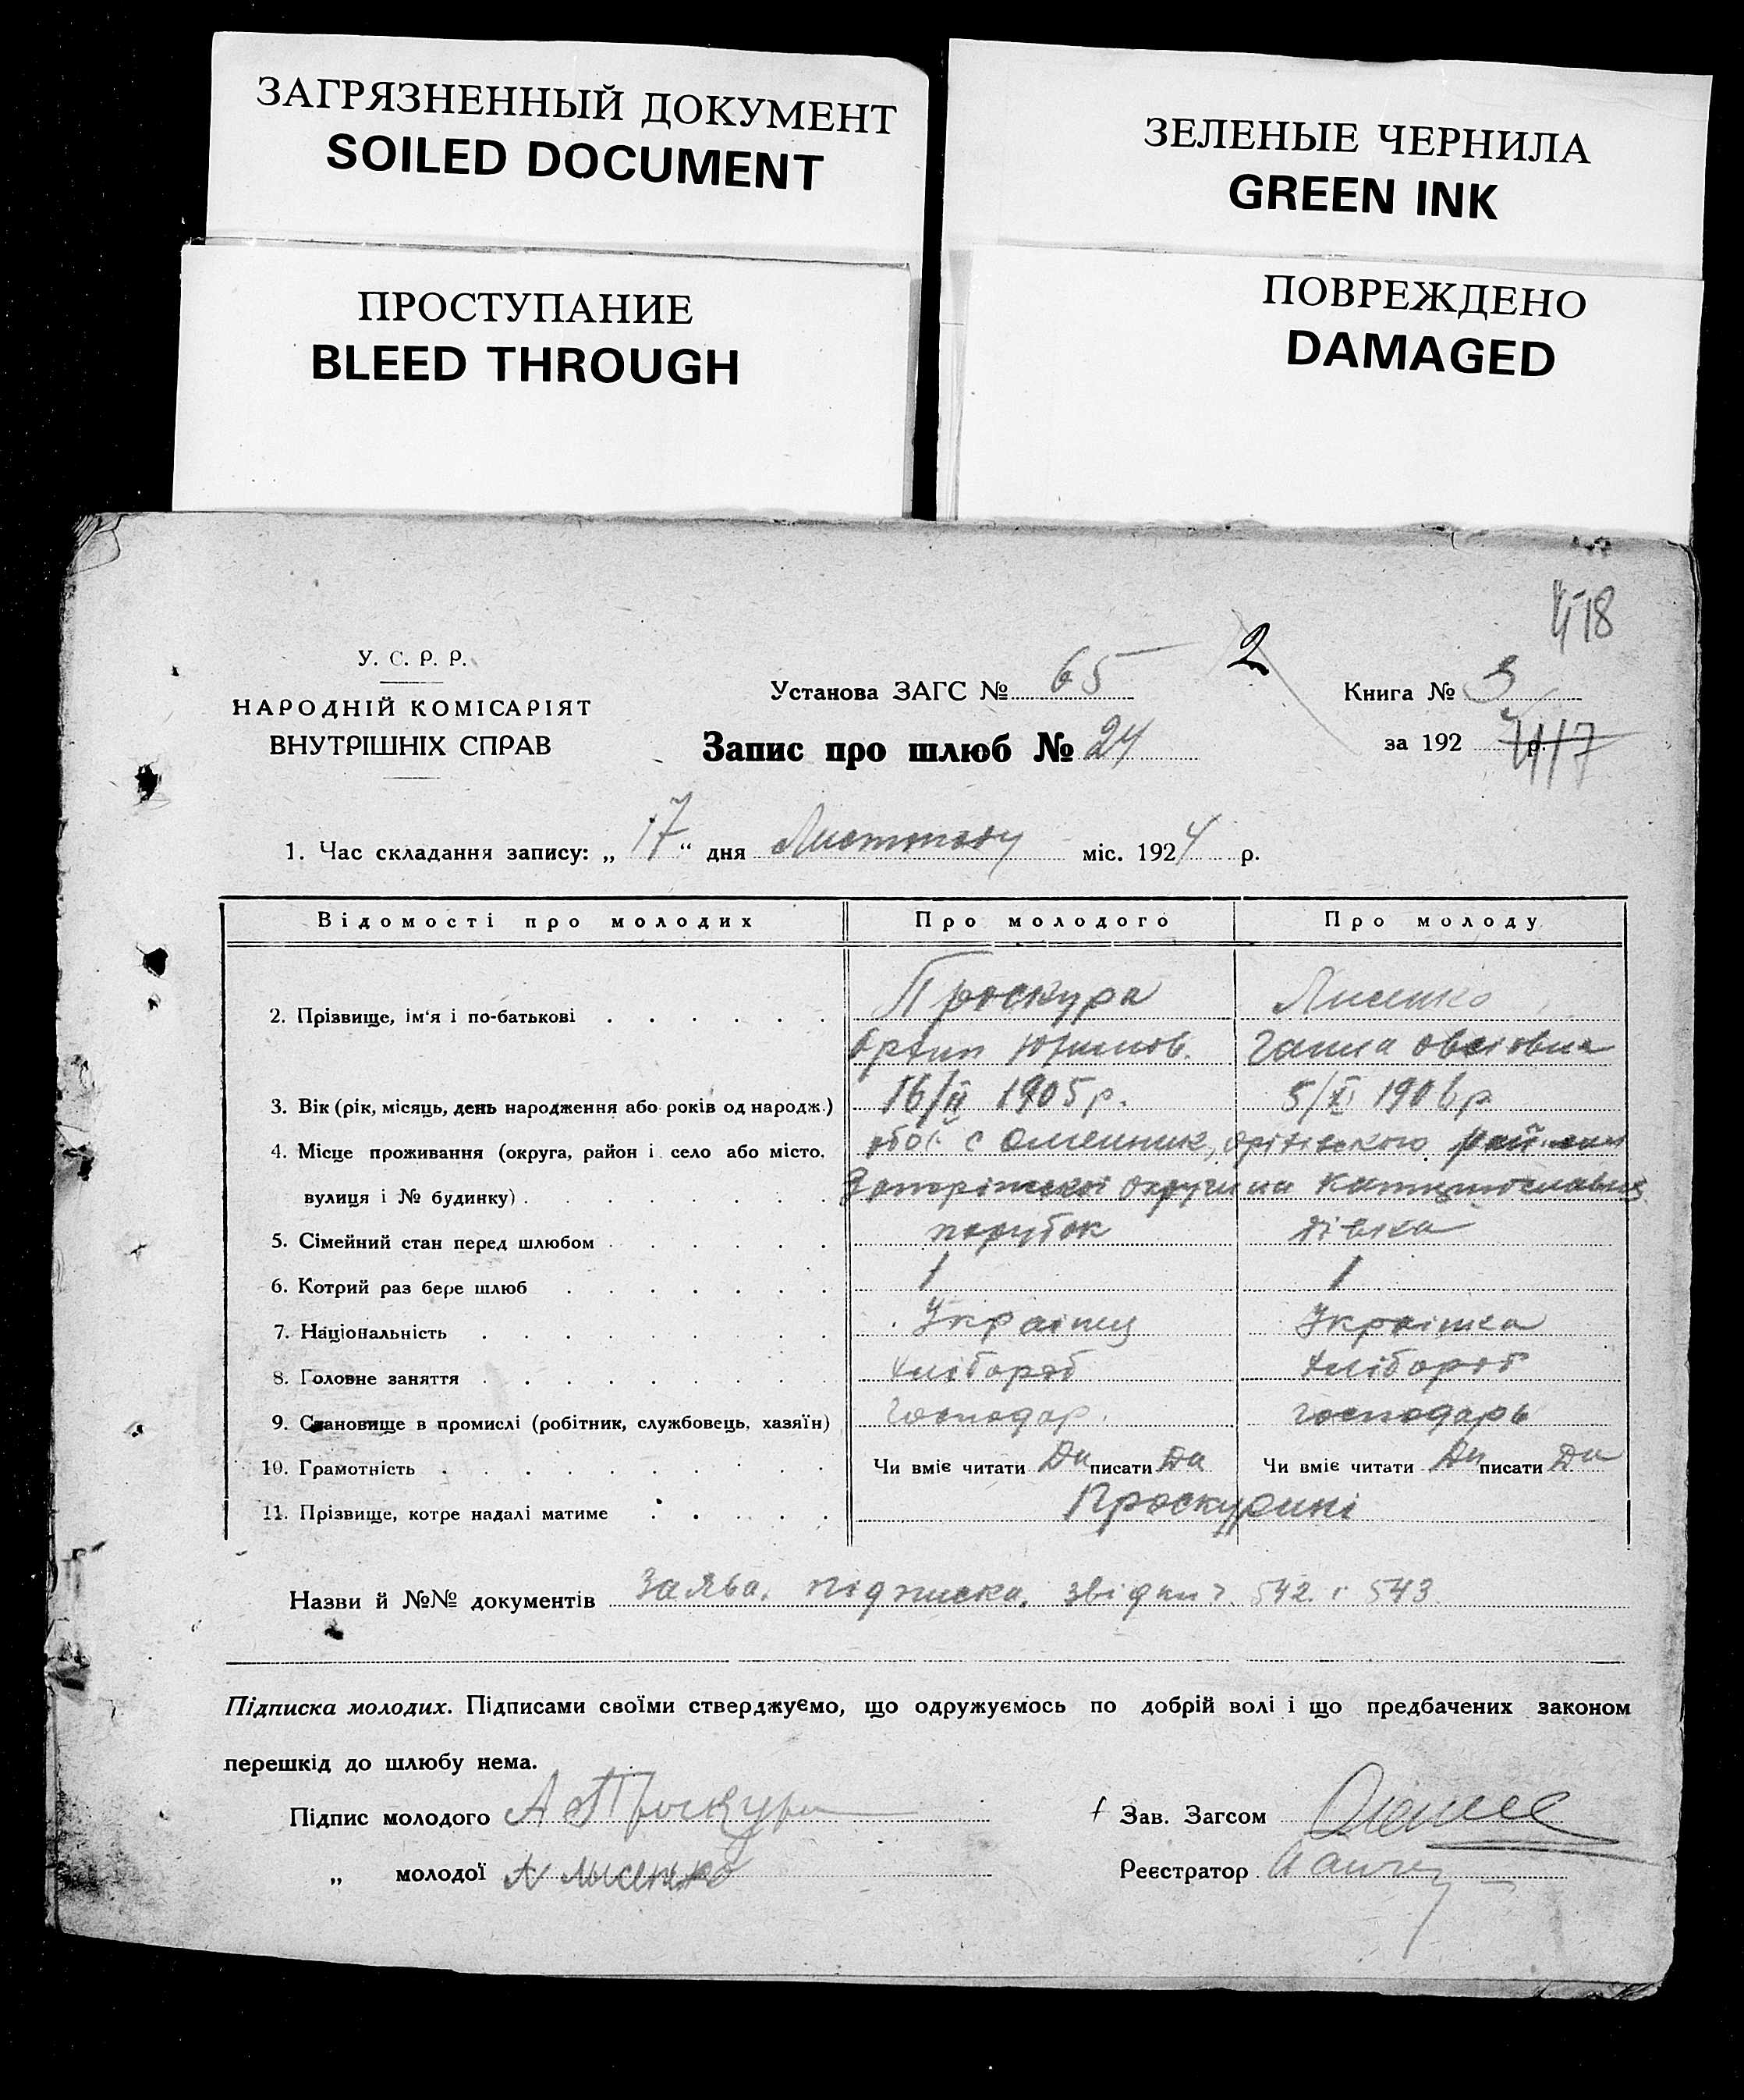 ЗАГРЯЗНЕННЫЙ ДОКУМЕНТ
SOILED DOCUMENT
ЗЕЛЕНЫЕ ЧЕРНИЛА
GREEN INK
ПРОСТУПАНИЕ
BLEED THROUGH
ПОВРЕЖДЕНО
DAMAGED
418
У. С. Р. Р.
НАРОДНІЙ КОМІСАРІЯТ
ВНУТРІШНІХ СПРАВ
Установа ЗАГС № 65
2
Книга № 3
Запис про шлюб № 24
за 192 р.
417
1. Час складання запису: „ 17 “ дня Листопаду міс. 1924 р.
Відомості про молодих Про молодого Про молоду
2. Прізвище, ім'я і по-батькові Проскура Лисенко
Юхимов. Ганна Овсіовна
3. Вік (рік, місяць, день народження або років од народж.) 16/II 1905 р. 5/XI 1906 р
4. Місце проживання (округа, район і село або місто, обоє с Омельник, оріхівського району
вулиця і № будинку) Запоріжської округи на
5. Сімейний стан перед шлюбом парубок дівка
6. Котрий раз бере шлюб 1 1
7. Національність Українець Українка
8. Головне заняття хлібороб хлібороб
9. Становище в промислі (робітник, службовець, хазяїн) господар. господарь
10. Грамотність Чи вміє читати Да писати Да Чи вміє читати Да писати Да
11. Прізвище, котре надалі матиме Проскурині
Назви й №№ документів Заява. підписка. звідки ч. 542. і 543.
Підписка молодих. Підписами своїми стверджуємо, що одружуємось по добрій волі і що предбачених законом
перешкід до шлюбу нема.
Підпис молодого А Проскура
Зав. Загсом
„ молодої Лисенко
Реєстратор